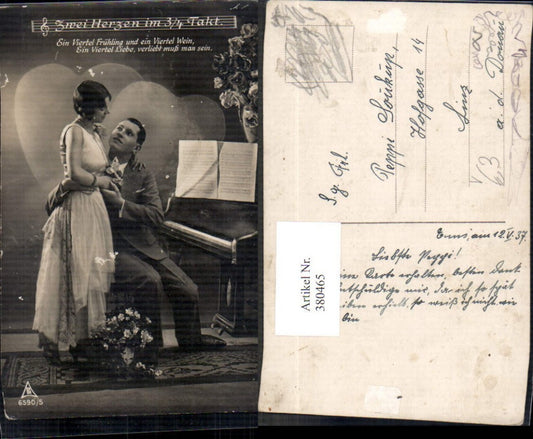 Zwei Herzen im 3/4 Takt.
Ein Viertel Frühling und ein Viertel Wein,
Ein Viertel Liebe, verliebt muß man sein.
6590/5
S. g. Frl.
Peppi Soukup,
Hofgasse 14
Linz
a. d. Donau
Artikel Nr.
380465
Enns, am 12.V.37.
Liebste Peppi!
Karte erhalten, besten Dank
mir, da ich so spät
so weiß ich nicht wie
bin